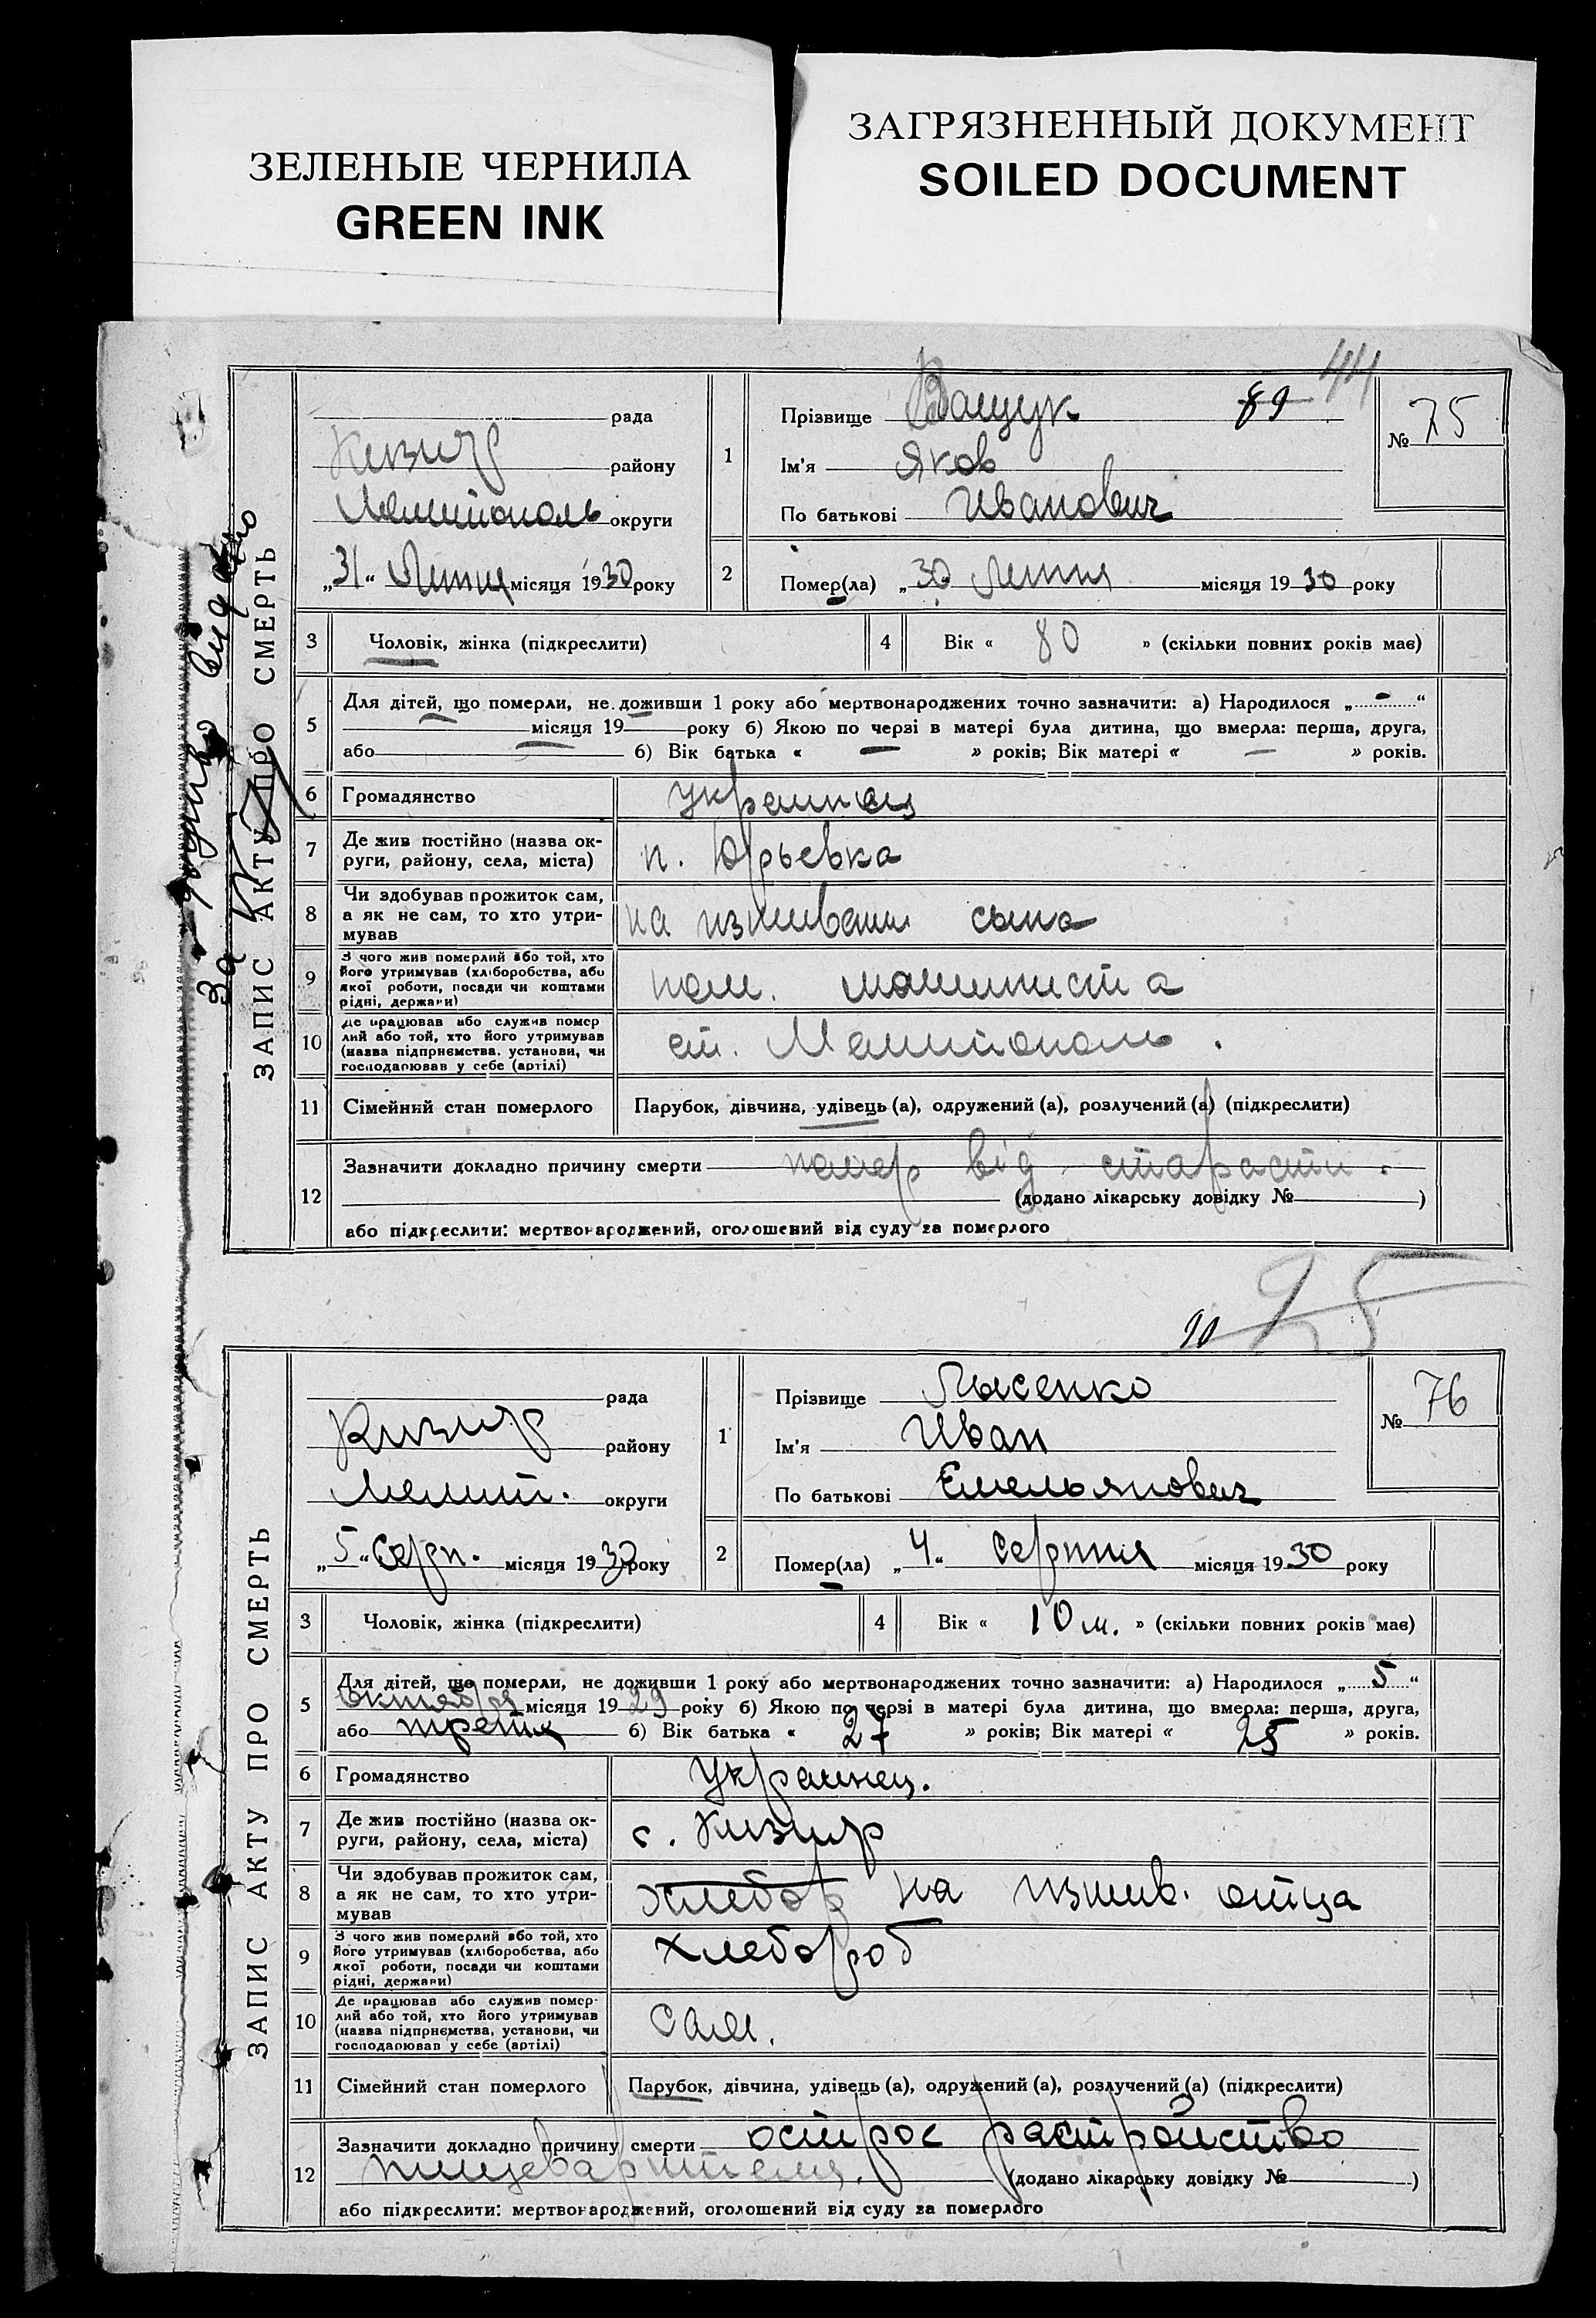 ЗЕЛЕНЫЕ ЧЕРНИЛА
GREEN INK
ЗАГРЯЗНЕННЫЙ ДОКУМЕНТ
SOILED DOCUMENT
44
89
ЗАПИС АКТУ ПРО СМЕРТЬ
рада
Кизияр району
Мелитополь округи
„31“ Липня місяця 1930 року
1
Прізвище Ващук
Ім'я Яков
По батькові Иванович
№ 75
2
Помер(ла) „30 Липня місяця 1930 року
3
Чоловік, жінка (підкреслити)
4
Вік « 80 » (скільки повних років має)
5
Для дітей, що померли, не доживши 1 року або мертвонароджених точно зазначити: а) Народилося „ - “
місяця 19 року б) Якою по черзі в матері була дитина, що вмерла: перша, друга,
або б) Вік батька « — » років; Вік матері « — » років.
6
Громадянство
украинец
7
Де жив постійно (назва ок-
руги, району, села, міста)
п. Юрьевка
8
Чи здобував прожиток сам,
а як не сам, то хто утри-
мував
на иждивении сына
9
З чого жив померлий або той, хто
його утримував (хліборобства, або
якої роботи, посади чи коштами
рідні, держави)
пом. машиниста
10
Де працював або служив помер
лий або той, хто його утримував
(назва підприємства, установи, чи
господарював у себе (артілі)
ст. Мелитополь.
11
Сімейний стан померлого
Парубок, дівчина, удівець (а), одружений (а), розлучений (а) (підкреслити)
12
Зазначити докладно причину смерти помер від старости.
(додано лікарську довідку № )
або підкреслити: мертвонароджений, оголошений від суду за померлого
90
ЗАПИС АКТУ ПРО СМЕРТЬ
рада
Кизияр району
Мелит. округи
„5“ Серп. місяця 1930 року
1
Прізвище Лысенко
Ім'я Иван
По батькові Емельянович
№ 76
2
Помер(ла) „4“ серпня місяця 1930 року
3
Чоловік, жінка (підкреслити)
4
Вік « 10 м. » (скільки повних років має)
5
Для дітей, що померли, не доживши 1 року або мертвонароджених точно зазначити: а) Народилося „ 5 “
октября місяця 1929 року б) Якою по черзі в матері була дитина, що вмерла: перша, друга,
або третя б) Вік батька « 27 » років; Вік матері « 25 » років.
6
Громадянство
Украинец.
7
Де жив постійно (назва ок-
руги, району, села, міста)
с. Кизияр
8
Чи здобував прожиток сам,
а як не сам, то хто утри-
мував
хлебор на иждив. отца
9
З чого жив померлий або той, хто
його утримував (хліборобства, або
якої роботи, посади чи коштами
рідні, держави)
хлебороб
10
Де працював або служив помер-
лий або той, хто його утримував
(назва підприємства, установи, чи
господарював у себе (артілі)
сам.
11
Сімейний стан померлого
Парубок, дівчина, удівець (а), одружений (а), розлучений (а) (підкреслити)
12
Зазначити докладно причину смерти острое растройство
пищеварителя.
(додано лікарську довідку № )
або підкреслити: мертвонароджений, оголошений від суду за померлого